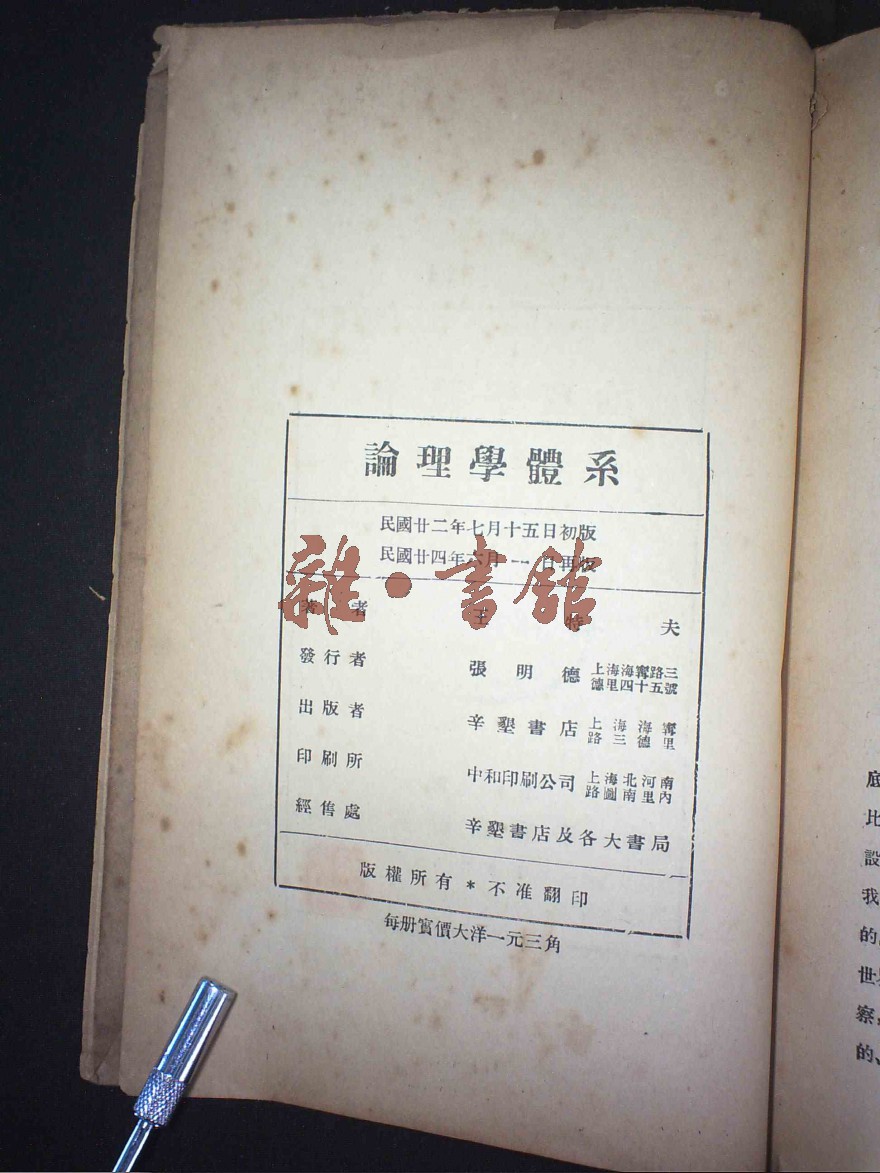 論理學體系
民國廿二年七月十五日初版
民國廿四年六月一日再版
雜·書館
著者 王特夫
發行者 張明德 上海海寗路三德里四十五號
出版者 辛墾書店 上海海寗路三德里
印刷所 中和印刷公司 上海北河南路圖南里內
經售處 辛墾書店及各大書局
版權所有*不准翻印
每册實價大洋一元三角
底
比
設
我
的
世
察
的、